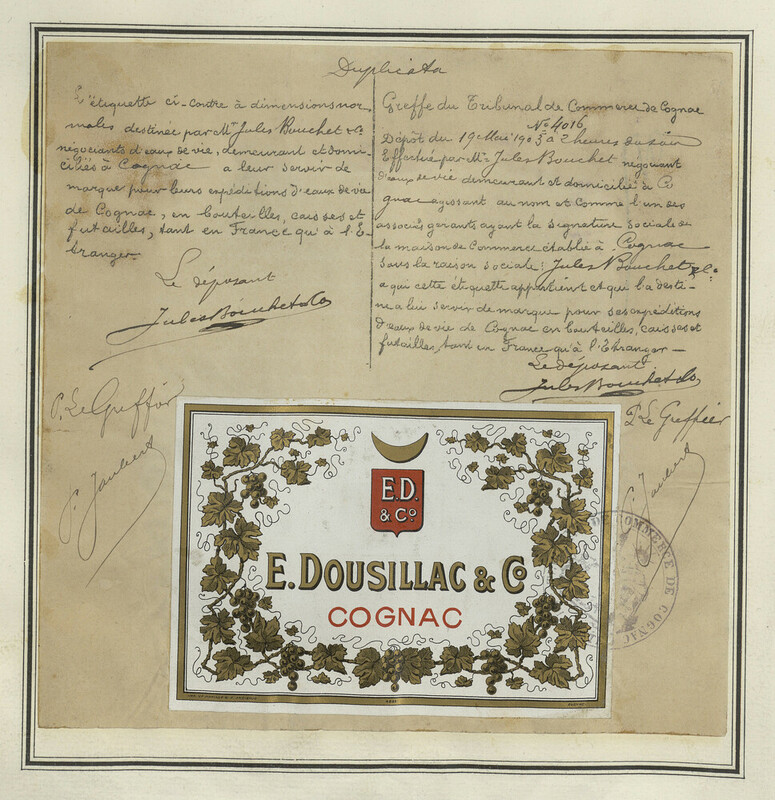 Duplicata
L'étiquette ci-contre à dimensions nor-
males destinée par Mr Jules Bouchet & Cº
négociants d'eaux de vie, demeurant et domi-
ciliés à Cognac a leur servir de
marque pour leurs expéditions d'eaux de vie
de Cognac, en bouteilles, caisses et
futailles, tant en France qu'à l'E-
tranger
Le déposant
Jules Bouchet & Co
P. Le Greffier
Jaubert
Greffe du Tribunal de Commerce de Cognac
Nº 4016
Dépôt du 19 Mai 1905 à 2 heures du soir
Effectué par Mr Jules Bouchet négociant
d'eaux de vie demeurant et domicilié à Co
gnac agissant au nom et comme l'un des
associés gerants ayant la signature sociale de
la maison de Commerce établie à Cognac
sous la raison sociale: Jules Bouchet & Cº
a qui cette étiquette appartient et qui l'a desti-
né a lui servir de marque pour ses expéditions
d'eaux de vie de Cognac en bouteilles, caisses et
futailles, tant en France qu'à l'Etranger
Le déposant
Jules Bouchet & Co
P. Le Greffier
Jaubert
E.D.
& Cº
E. DOUSILLAC & Cº
COGNAC
DE COMMERCE DE COGNAC